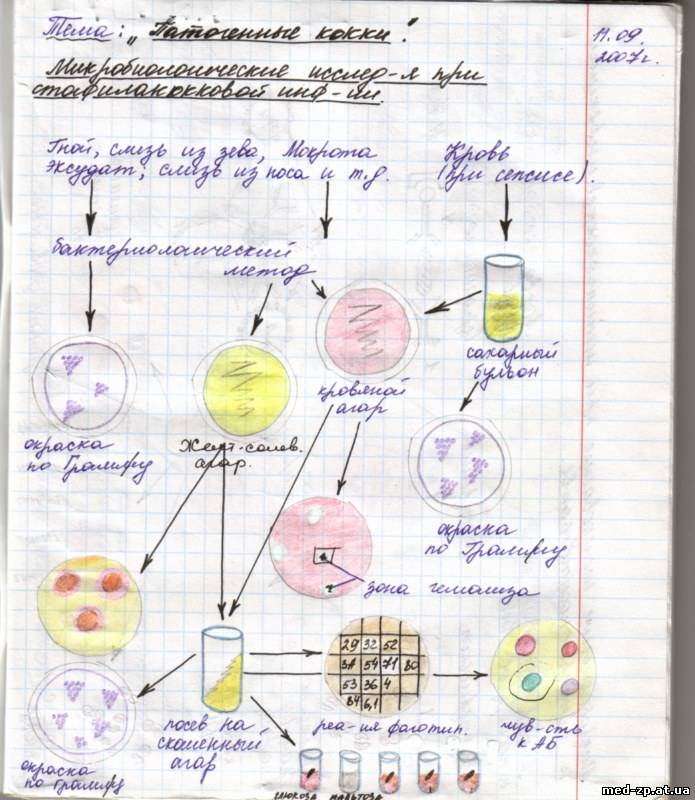 Тема: „Патогенные кокки".
11.09.
2007г.
Микробиологические исслед-я при
стафилакокковой инф-ии.
Гной, слизь из зева, Мокрота
Эксудат, слизь из носа и т.д.
Кровь
(при сепсисе).
бактериологический
метод
сахарный
бульон
кровяной
агар
окраска
по Граму
Желт-солев.
агар.
окраска
по Граму
зона гемолиза
29 32 52
3А 54 71 80
53 36 4
84 6,1
посев на
скошенный
агар
реа-ия фаготип.
чув-сть
к АБ
окраска
по Граму
глюкоза мальтоза
med-zp.at.ua